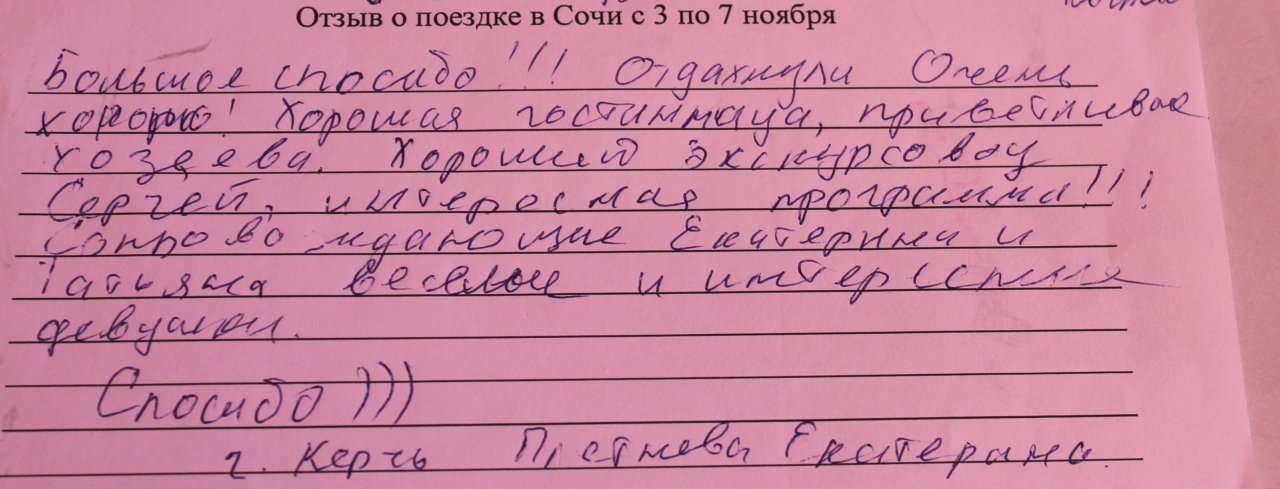 Отзыв о поездке в Сочи с 3 по 7 ноября
Большое спасибо!!! Отдахнули Очень
хорошо! Хорошая гостинница, приветливые
хозяева. Хороший экскурсовод
Сергей, интересная программа!!!
Сопровождающие Екатерина и
Татьяна веселые и интересные
девушки.
Спасибо)))
г. Керчь Екатерина.